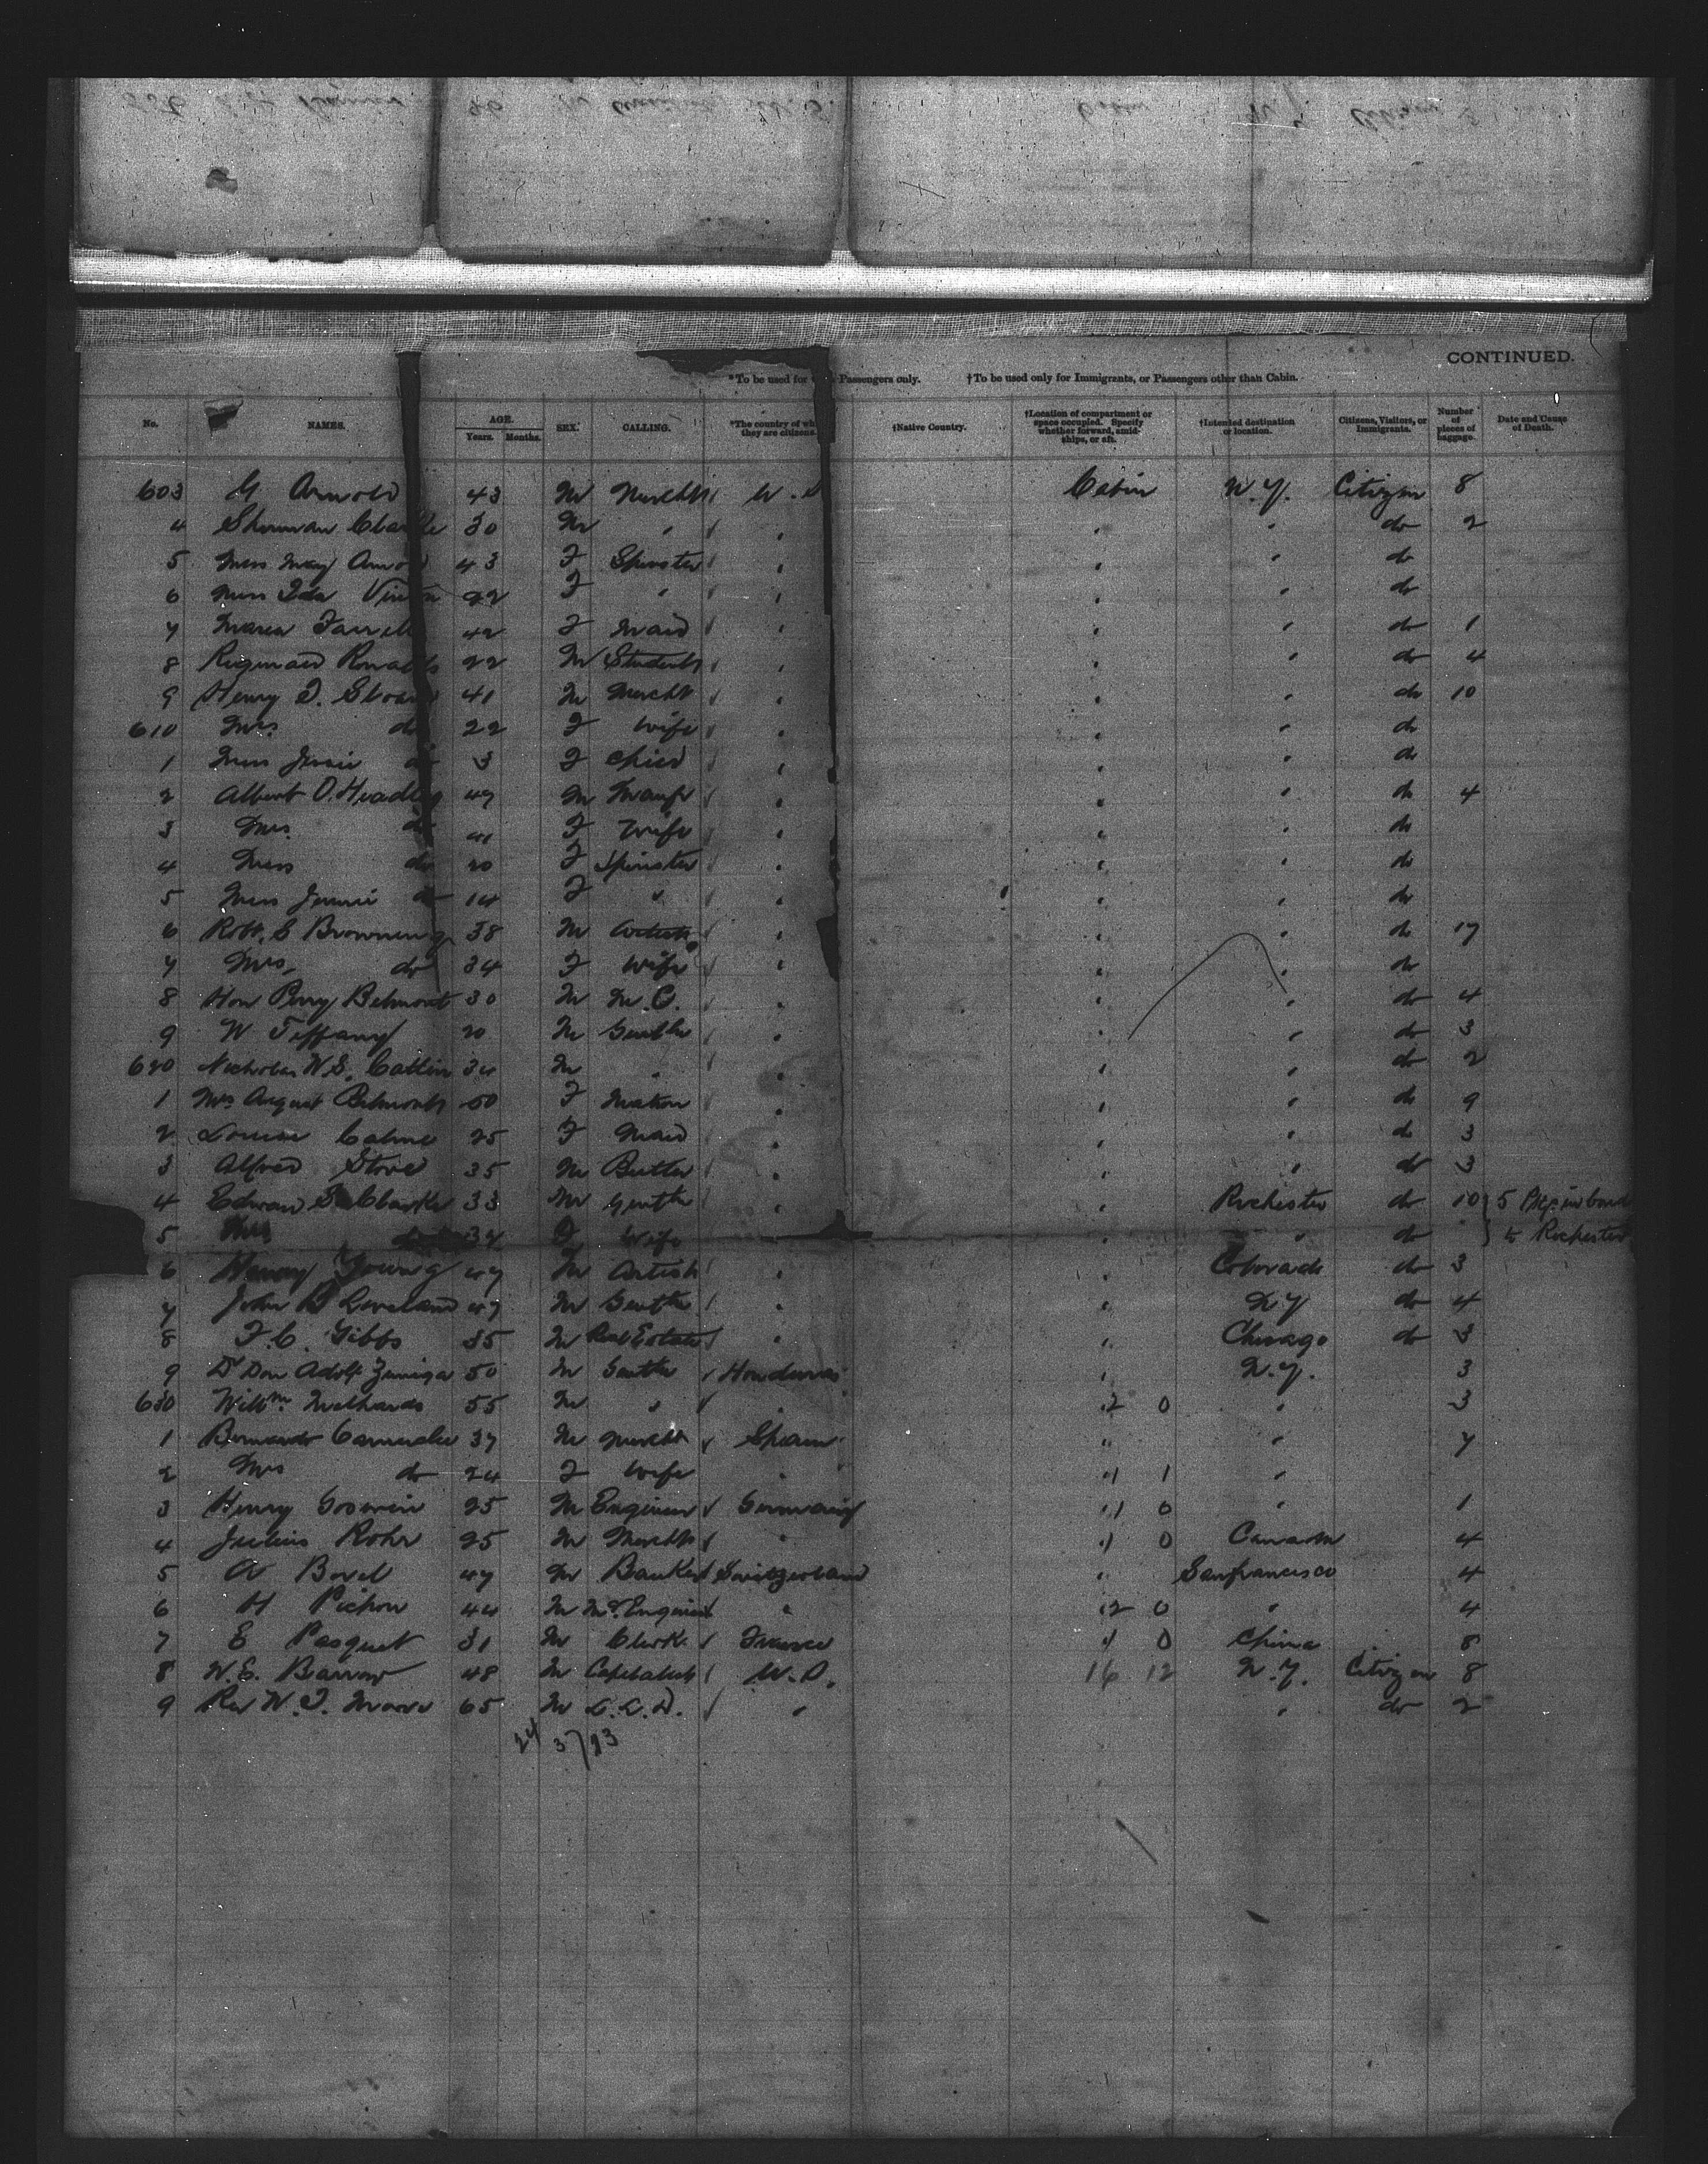 CONTINUED.
*To be used for Passengers only. †To be used only for Immigrants, or Passengers other than Cabin.
No. NAMES. AGE. Years. Months. SEX. CALLING. *The country of wh they are citizens. †Native Country. †Location of compartment or space occupied. Specify whether forward, amidships, or aft. †Intended destination or location. Citizens, Visitors, or Immigrants. Number of pieces of baggage. Date and Cause of Death.
603 G Arnold 43 M Mercht U. Cabin N.Y. Citizen 8
4 Sherman Cla ke 30 M " " " " do 2
5 Miss May Arno 43 F Spinster " " " do
6 Miss Ida Vin 22 F " " " " do
7 Maria Farrel 42 F Maid " " " do 1
8 Reginald Rona ds 22 M Student " " " do 4
9 Henry T. Sloa 41 M Mercht " " " do 10
610 Mrs. do 22 F Wife " " " do
1 Miss Jessie do 3 F Child " " " do
2 Albert O. Headley 49 M Manfr " " " do 4
3 Mrs. do 41 F Wife " " " do
4 Miss do 20 F Spinster " " " do
5 Miss Jennie do 14 F " " " " do
6 Robt. S Browning 38 M Artist " " " do 17
7 Mrs. do 34 F Wife " " " do
8 Hon Perry Belmont 30 M M.C. " " " do 4
9 W Tiffany 20 M Gentln " " " do 3
620 Nicholas W.S. Catlin 34 M " " " " do 2
1 Mrs August Belmont 50 F Matron " " " do 9
2 Louise 25 F Maid " " " do 3
3 Alfred Stove 35 M Butler " " " do 3
4 Edward S Clarke 33 M Gentln " " Rochester do 10 } 5 in bond
5 Mrs do 34 F Wife " " " do } to Rochester
6 Harvey Young 47 M Artist " " Colorado do 3
7 John B Loveland 47 M Gentln " " N.Y do 4
8 F.C. Gibbs 35 M Real Estate " " Chicago do 3
9 Dr Don Adolf Zuniga 50 M Gentln Honduras " N.Y. 3
630 Willm. 55 M " " 12 0 " 3
1 Bernardo 37 M Mercht Spain " " 7
2 Mrs do 24 F Wife " 11 1 "
3 Henry Goswin 25 M Engineer Germany 11 0 " 1
4 Julius Rohr 25 M Mercht " 11 0 Canada 4
5 A Borel 47 M Banker Switzerland " Sanfrancisco 4
6 H Pichon 44 M Engineer " 12 0 " 4
7 E Pasquet 31 M Clerk France 11 0 China 8
8 W.E. Barrow 48 M Capitalist U.S. 16 12 N.Y. Citizen 8
9 Rev W.T. Moore 65 M L.L.D. " " do 2
24 37/13